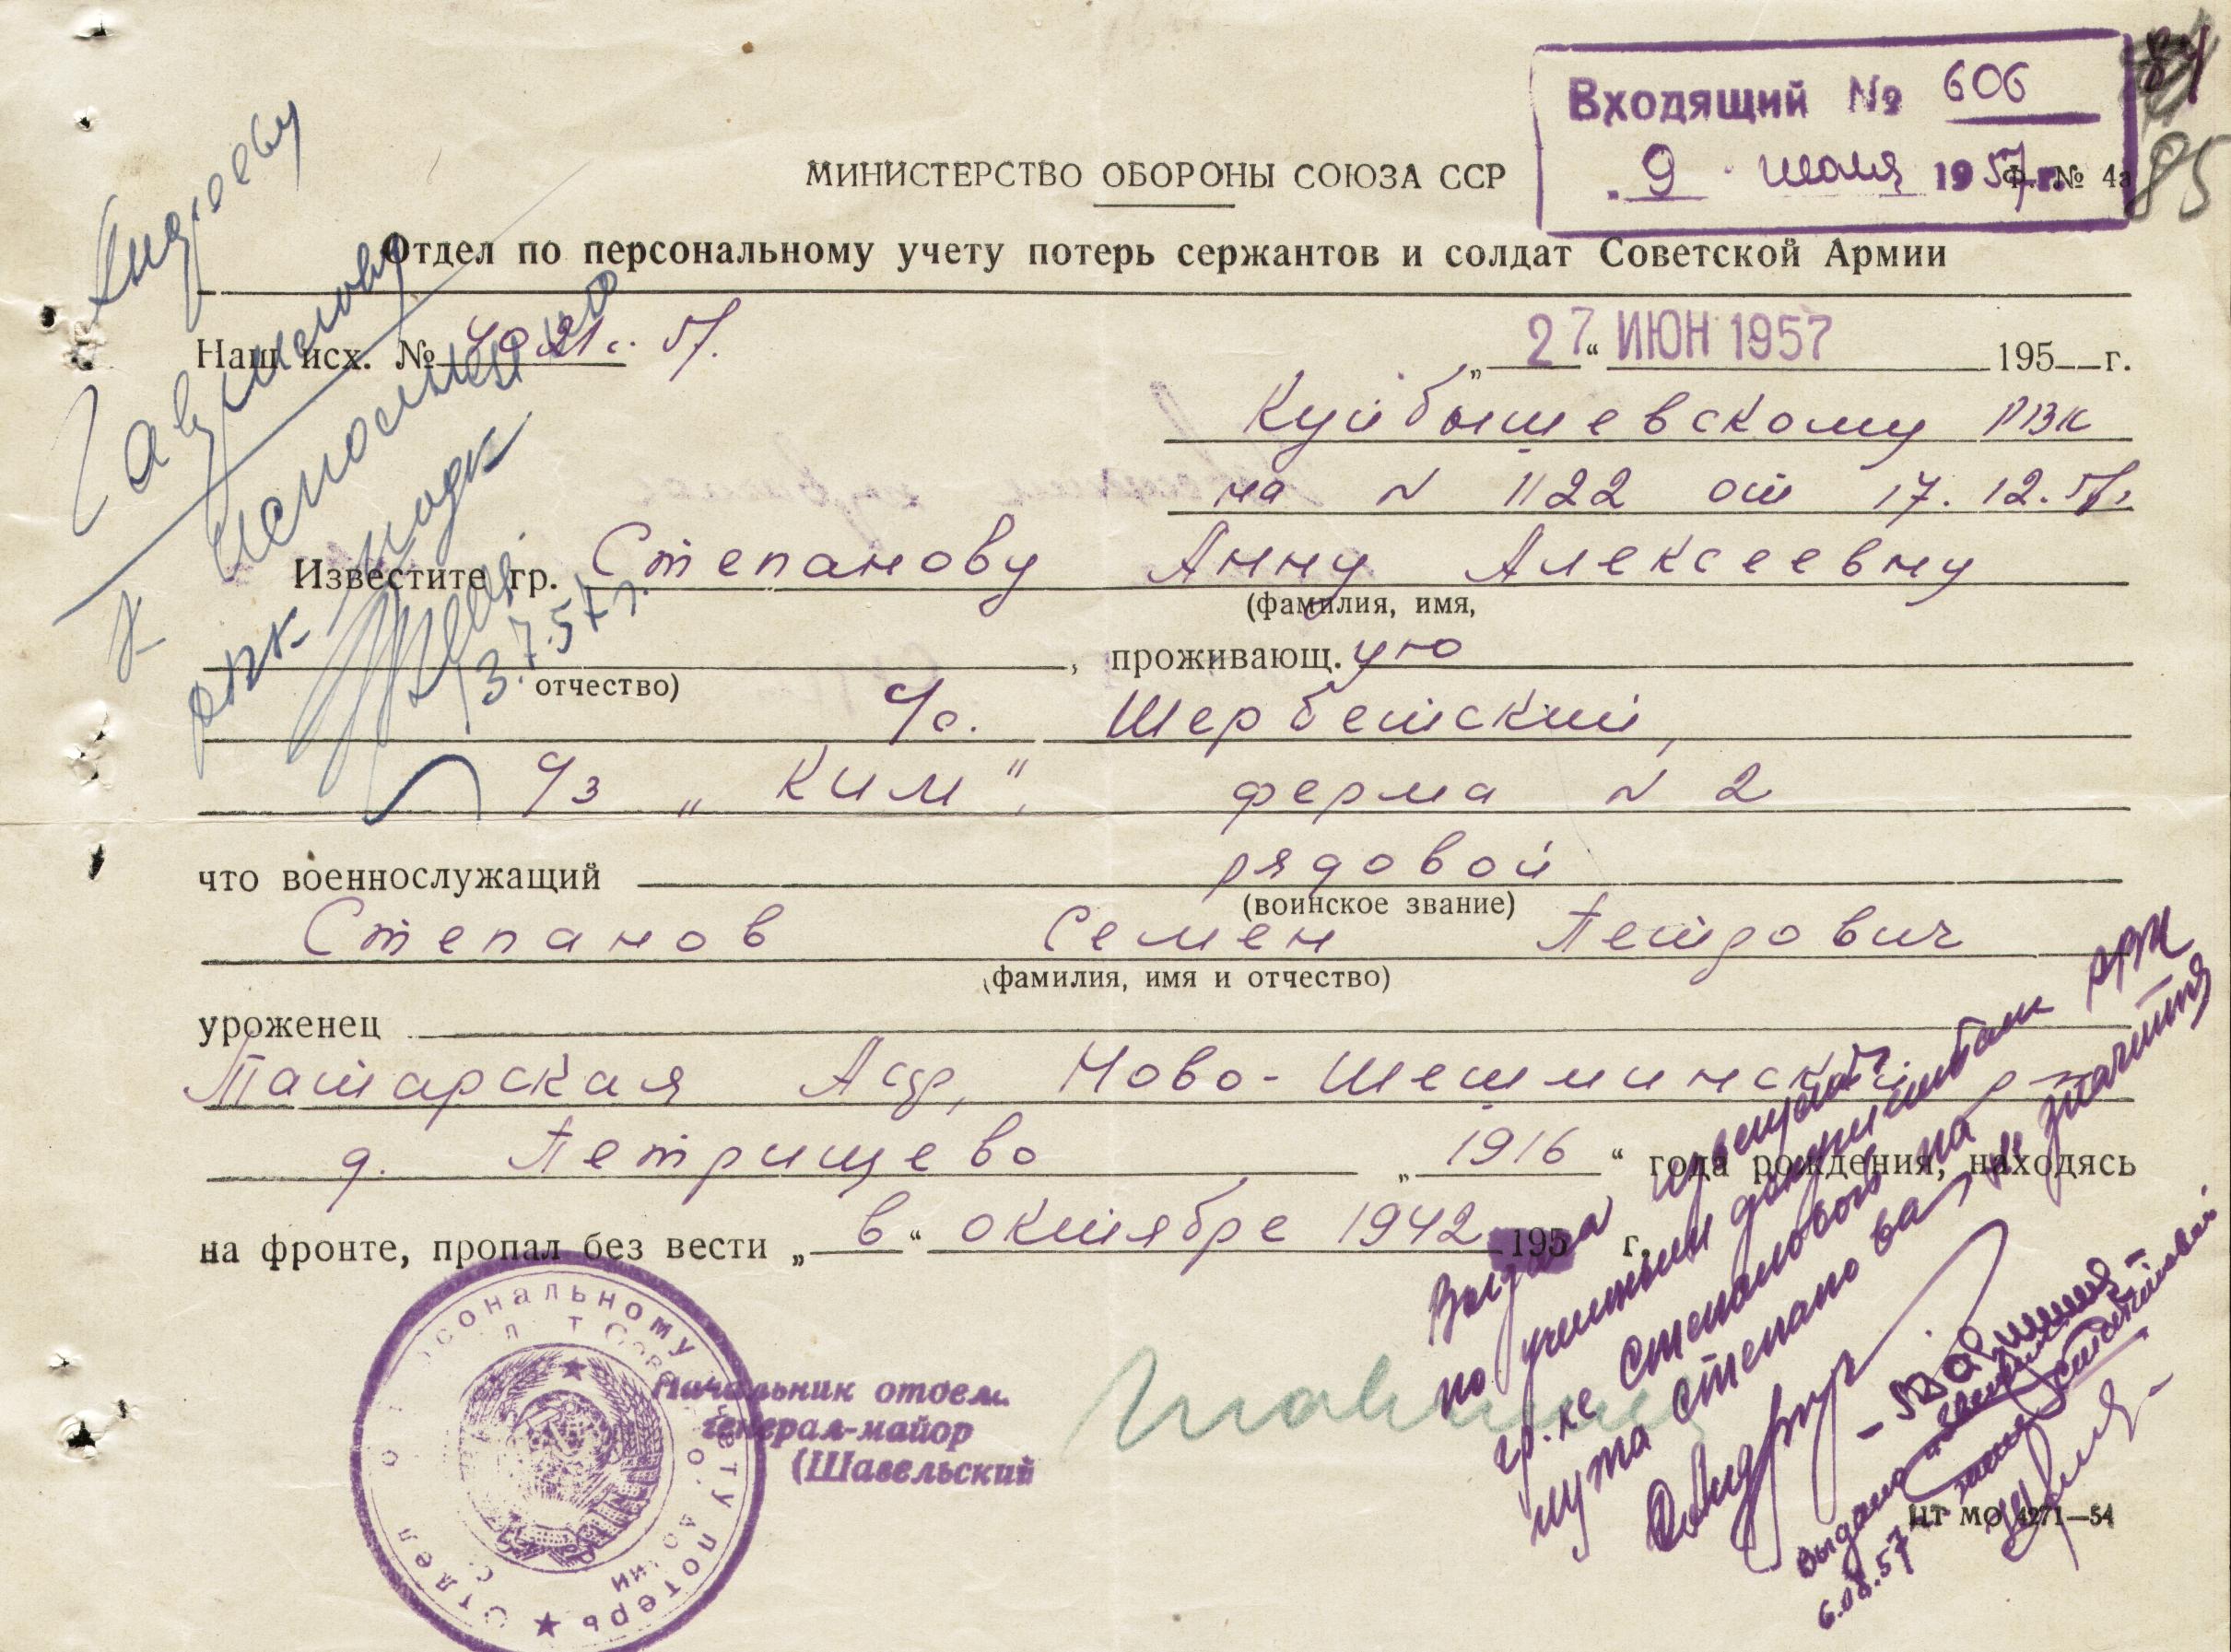 Входящий № 606
9 июля 1957 г.
84
85
МИНИСТЕРСТВО ОБОРОНЫ СОЮЗА ССР
Ф. № 4а
Отдел по персональному учету потерь сержантов и солдат Советской Армии
Наш исх. №
„27“ ИЮН 1957 195 г.
Куйбышевскому РВК
на N 1122 от 17.12.
Известите гр. Степанову Анну Алексеевну
(фамилия, имя,
, проживающ.ую
отчество)
Щербетский,
„Ким“, ферма N 2
что военнослужащий рядовой
(воинское звание)
Степанов Семен Петрович
(фамилия, имя и отчество)
уроженец
Татарская Асср, Ново-Шешминский р-н
д. Петрищево „1916“ года рождения, находясь
на фронте, пропал без вести „в“ октябре 1942 195 г.
Отдел по персональному учету потерь
Начальник отдела
генерал-майор
(Шавельский
Андрееву
исполнению
3.7.57 г.
Выдана
по учетным документам РВК
гр-ке Степановой на
мужа Степанова не значится
Выдано извещение
6.08.57
ЦТ МО 4271—54